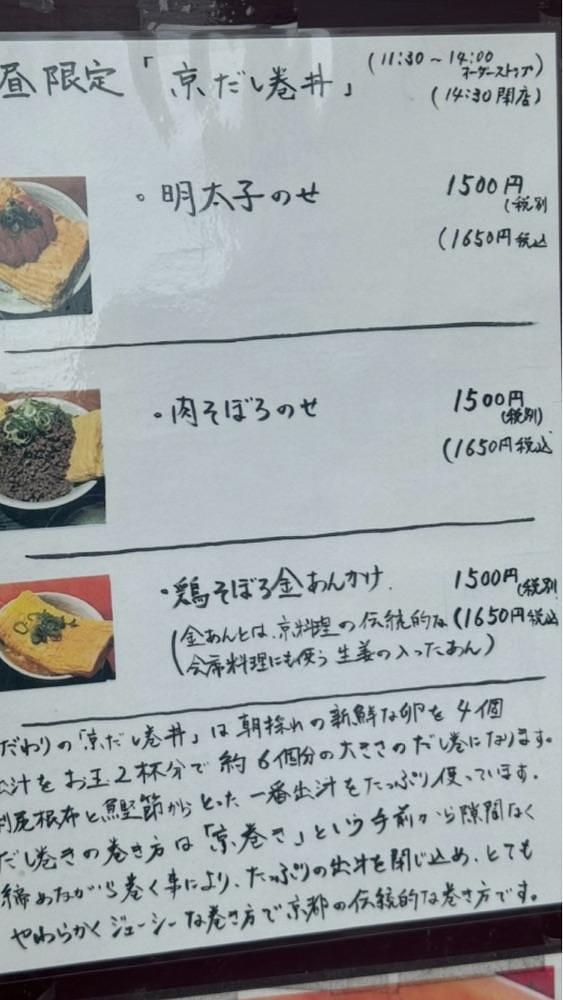 昼限定「京だし巻丼」
(11:30～14:00
オーダーストップ)
(14:30閉店)
・明太子のせ
1500円
(税別
(1650円税込
・肉そぼろのせ
1500円
(税別)
(1650円税込
・鶏そぼろ金あんかけ
1500円(税別
(1650円税込
(金あんとは、京料理の伝統的な
会席料理にも使う生姜の入ったあん)
だわりの「京だし巻丼」は朝採れの新鮮な卵を4個
汁をお玉2杯分で約6個分の大きさのだし巻になります。
利尻根布と鰹節からとった一番出汁をたっぷり使っています。
だし巻きの巻き方は「京巻き」という手前から隙間なく
締めながら巻く事により、たっぷりの出汁を閉じ込め、とても
やわらかくジューシーな巻き方で京都の伝統的な巻き方です。